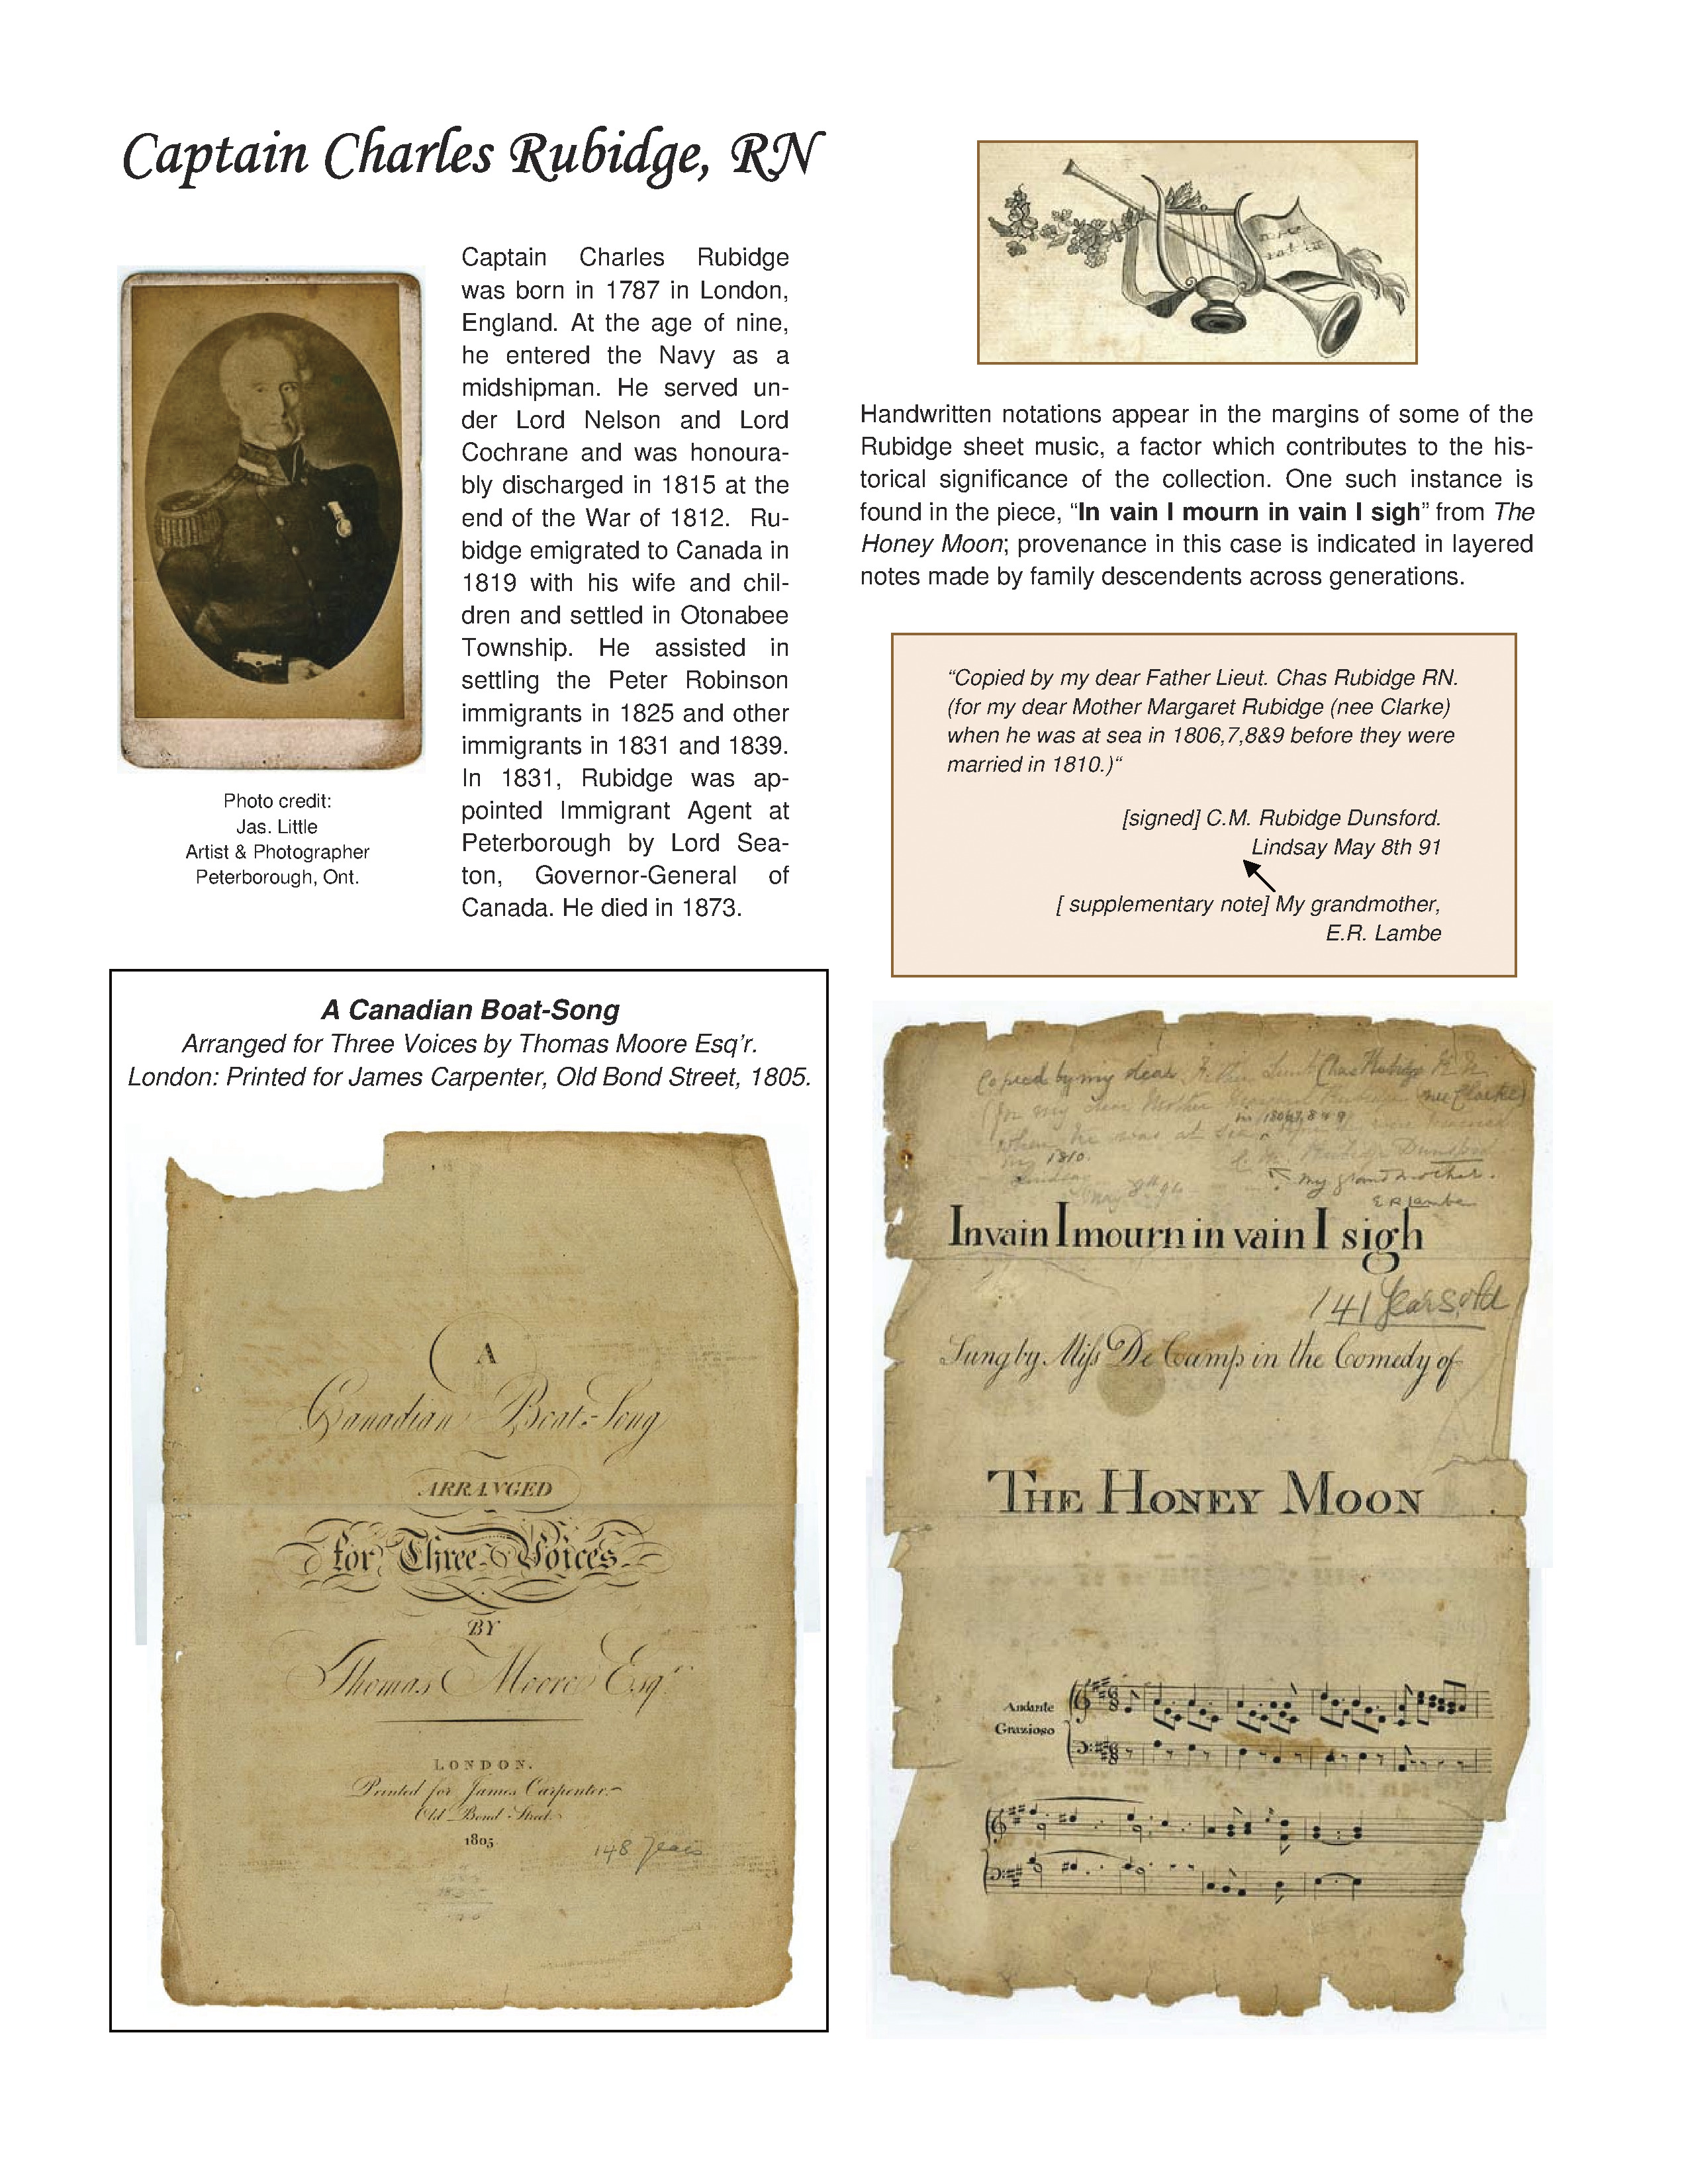 Captain Charles Rubidge, RN
Captain Charles Rubidge
was born in 1787 in London,
England. At the age of nine,
he entered the Navy as a
midshipman. He served un-
der Lord Nelson and Lord
Cochrane and was honoura-
bly discharged in 1815 at the
end of the War of 1812. Ru-
bidge emigrated to Canada in
1819 with his wife and chil-
dren and settled in Otonabee
Township. He assisted in
settling the Peter Robinson
immigrants in 1825 and other
immigrants in 1831 and 1839.
In 1831, Rubidge was ap-
pointed Immigrant Agent at
Peterborough by Lord Sea-
ton, Governor-General of
Canada. He died in 1873.
Photo credit:
Jas. Little
Artist & Photographer
Peterborough, Ont.
A Canadian Boat-Song
Arranged for Three Voices by Thomas Moore Esq'r.
London: Printed for James Carpenter, Old Bond Street, 1805.
A
Canadian Boat-Song
ARRANGED
for Three Voices
BY
Thomas Moore Esqr
LONDON.
Printed for James Carpenter
Old Bond Street
1805
148 years
Handwritten notations appear in the margins of some of the
Rubidge sheet music, a factor which contributes to the his-
torical significance of the collection. One such instance is
found in the piece, “In vain I mourn in vain I sigh” from The
Honey Moon; provenance in this case is indicated in layered
notes made by family descendents across generations.
“Copied by my dear Father Lieut. Chas Rubidge RN.
(for my dear Mother Margaret Rubidge (nee Clarke)
when he was at sea in 1806,7,8&9 before they were
married in 1810.)“
[signed] C.M. Rubidge Dunsford.
Lindsay May 8th 91
[ supplementary note] My grandmother,
E.R. Lambe
Copied by my dear Father Lieut Chas Rubidge R.N.
(for my dear Mother Margaret Rubidge nee Clarke)
in 1806,7,8 & 9
when he was at sea, before they were married
in 1810. C. M. Rubidge Dunsford
Lindsay My grandmother.
May 8th 91 E R Lambe
In vain I mourn in vain I sigh
141 Years old
Sung by Miss De Camp in the Comedy of
THE HONEY MOON
Andante
Grazioso